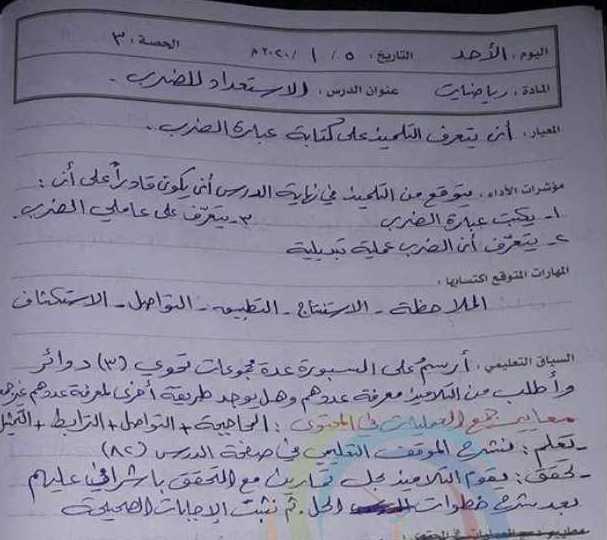 اليوم: الأحد التاريخ: ٥ / ١ / ٢٠٢٠م الحصة: ٣
المادة: رياضيات عنوان الدرس: الاستعداد للضرب.
المعيار: أن يتعرف التلميذ على كتابة عبارة الضرب.
مؤشرات الأداء: يتوقع من التلميذ في نهاية الدرس أن يكون قادراً على أن:
١- يكتب عبارة الضرب ٣- يتعرّف على عاملي الضرب.
٢- يتعرّف أن الضرب عملية تبديلية
المهارات المتوقع اكتسابها:
الملاحظة - الاستنتاج - التطبيق - التواصل - الاستكشاف
السياق التعليمي: أرسم على السبورة عدة مجموعات تحوي (٣) دوائر
وأطلب من التلاميذ معرفة عددهم وهل يوجد طريقة أخرى لمعرفة عددهم غير
معايير دمج العمليات في المحتوى: المحاججة + التواصل + الترابط + التمثيل
- تعلم: نشرح الموقف التعليمي في صفحة الدرس (٨٢)
- تحقق: يقوم التلاميذ بحل تمارين مع التحقق بإشرافي عليهم
بعد شرح خطوات الحل. ثم نثبت الإجابات الصحيحة
معايير دمج العمليات في المحتوى: